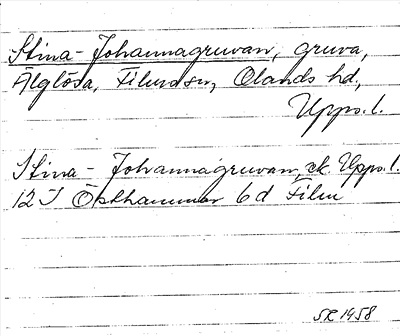 Stina-Johannagruvan, gruva,
Älglösa, Films sn, Olands hd,
Upps. l.
Stina-Johannagruvan, ek. Upps. l.
12 I Östhammar 6 d Film
SR 1958